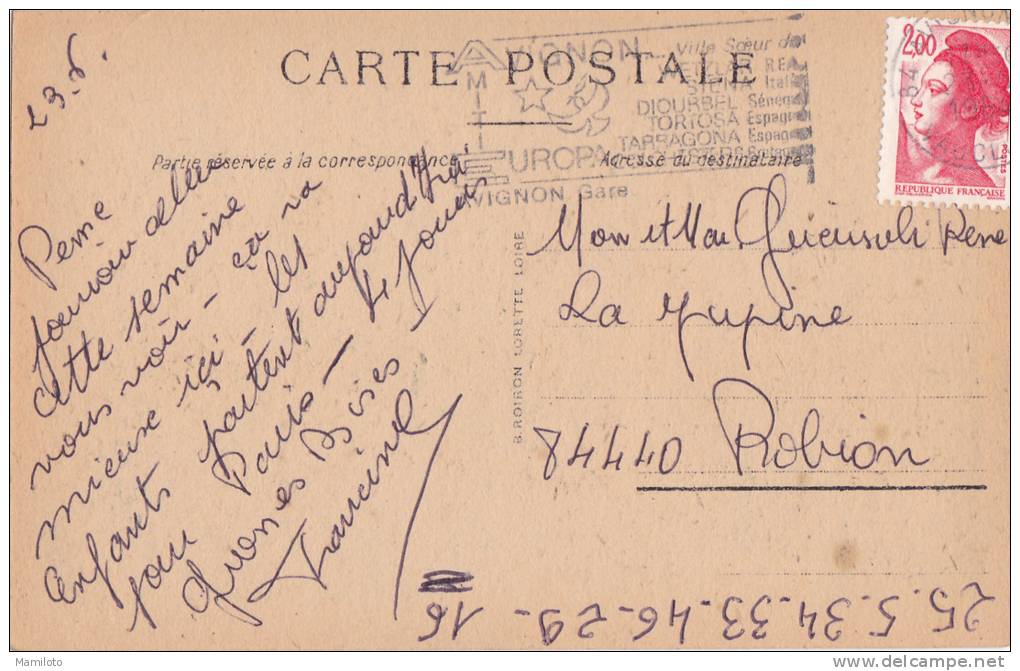 23.6.
CARTE POSTALE
AVIGNON
Ville Sœur de
WETZLAR R.F.A
SIENA Itali
DIOURBEL Sénég
TORTOSA Espagn
TARRAGONA Espag
AMITIE
EUROPA
AVIGNON Gare
84
VAUCLUSE
2,00
POSTES
REPUBLIQUE FRANÇAISE
Partie réservée à la correspondance
Adresse du destinataire
Pense
pouvoir aller
cette semaine
vous voir - ça va
mieux ici - les
enfants partent aujourd'hui
pour Paris - 4 jours
Grosses Bises
Francine
B. ROIRON LORETTE LOIRE
Mon et Ma René
La
84440 Robion
25.5.34.33.46.29-
16
Mamiloto
delcampe.net